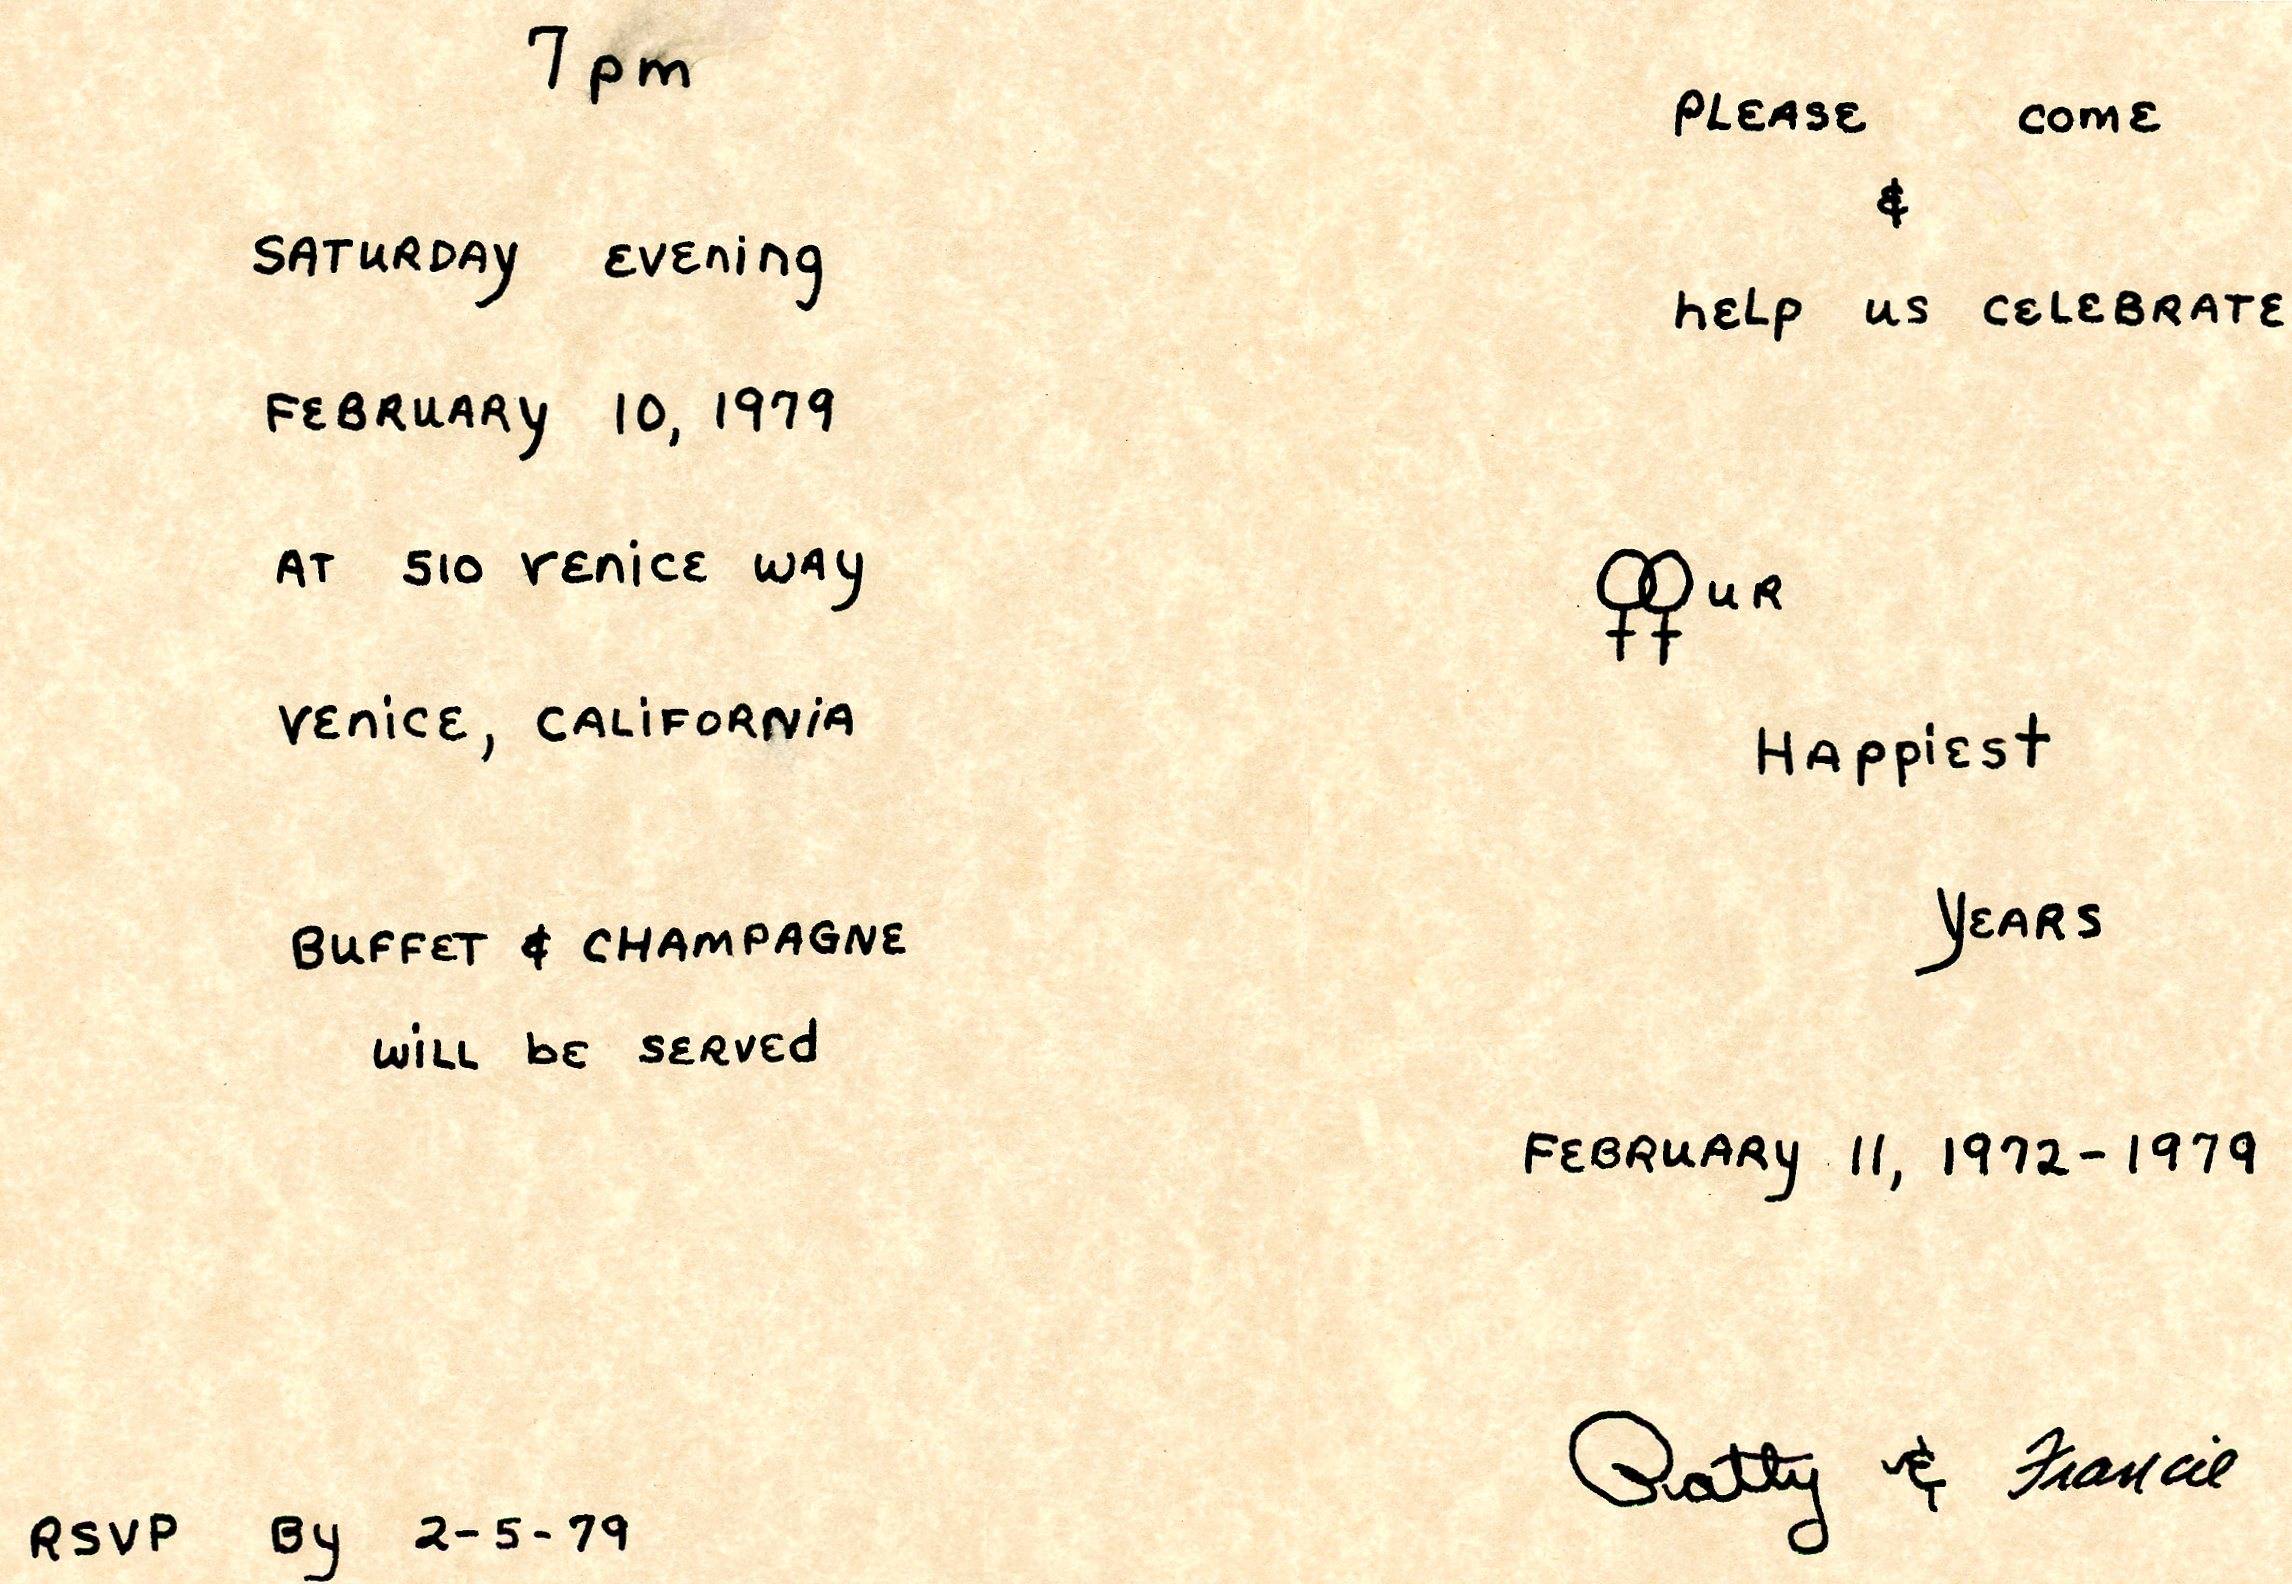 7 pm
SATURDAY EVEning
FEBRUARY 10, 1979
AT 510 VEniCE WAy
VEniCE, CALiFORNiA
BUFFET & CHAMPAGNE
WiLL bE SERVEd
RSVP By 2-5-79
PLEASE comE
&
hELp us CELEBRATE
⚢uR
HAppiEst
yEARS
FEBRUARy 11, 1972-1979
Patty & Francie